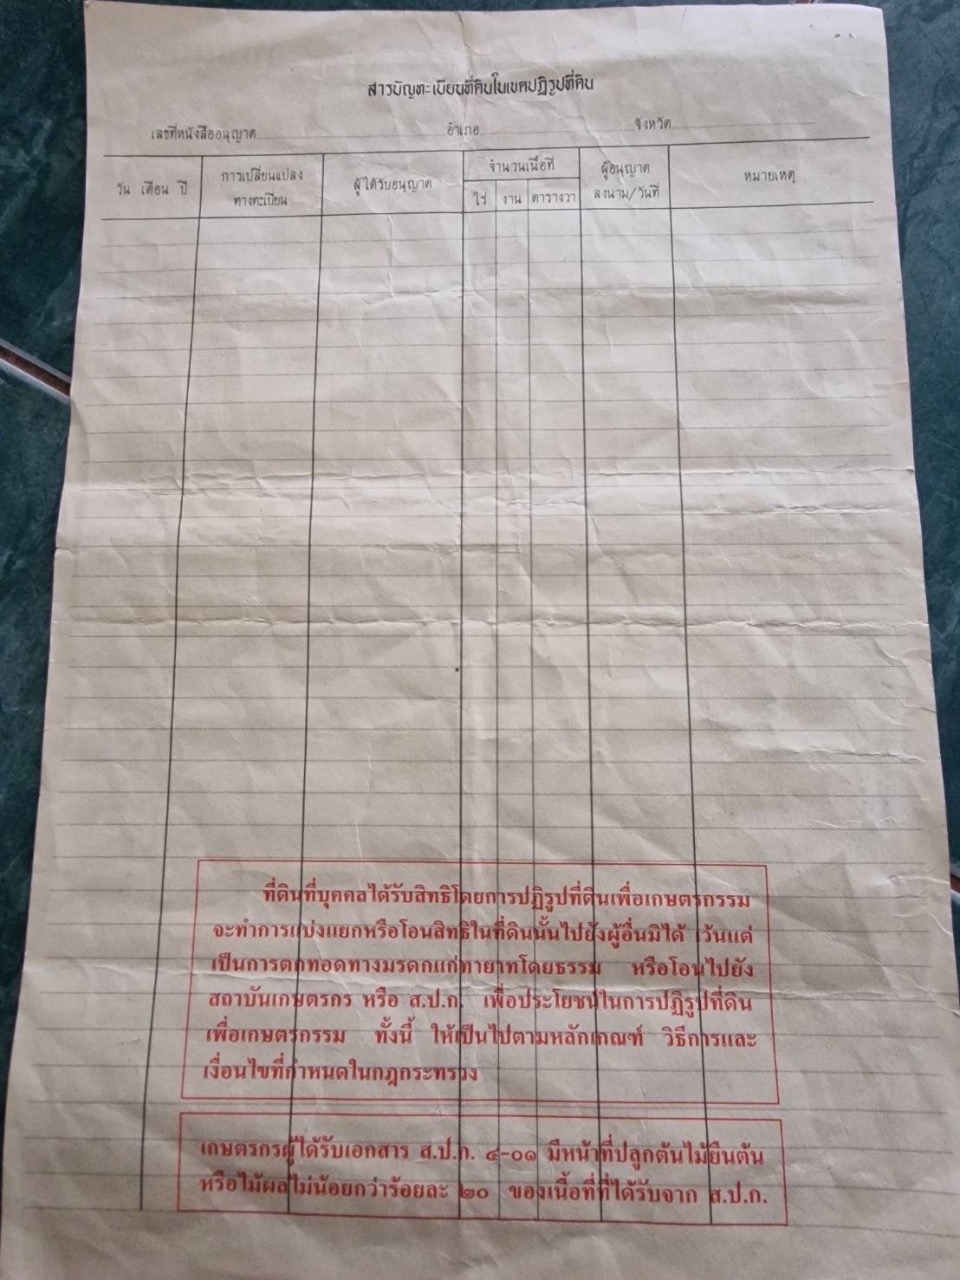 สารบัญทะเบียนที่ดินในเขตปฏิรูปที่ดิน
เลขที่หนังสืออนุญาต อำเภอ จังหวัด
วัน เดือน ปี การเปลี่ยนแปลง ผู้ได้รับอนุญาต จำนวนเนื้อที่ ผู้อนุญาต หมายเหตุ
ทางทะเบียน ไร่ งาน ตารางวา ลงนาม/วันที่
ที่ดินที่บุคคลได้รับสิทธิโดยการปฏิรูปที่ดินเพื่อเกษตรกรรม
จะทำการแบ่งแยกหรือโอนสิทธิในที่ดินนั้นไปยังผู้อื่นมิได้ เว้นแต่
เป็นการตกทอดทางมรดกแก่ทายาทโดยธรรม หรือโอนไปยัง
สถาบันเกษตรกร หรือ ส.ป.ก. เพื่อประโยชน์ในการปฏิรูปที่ดิน
เพื่อเกษตรกรรม ทั้งนี้ ให้เป็นไปตามหลักเกณฑ์ วิธีการและ
เงื่อนไขที่กำหนดในกฎกระทรวง
เกษตรกรผู้ได้รับเอกสาร ส.ป.ก. ๔-๐๑ มีหน้าที่ปลูกต้นไม้ยืนต้น
หรือไม้ผลไม่น้อยกว่าร้อยละ ๒๐ ของเนื้อที่ที่ได้รับจาก ส.ป.ก.